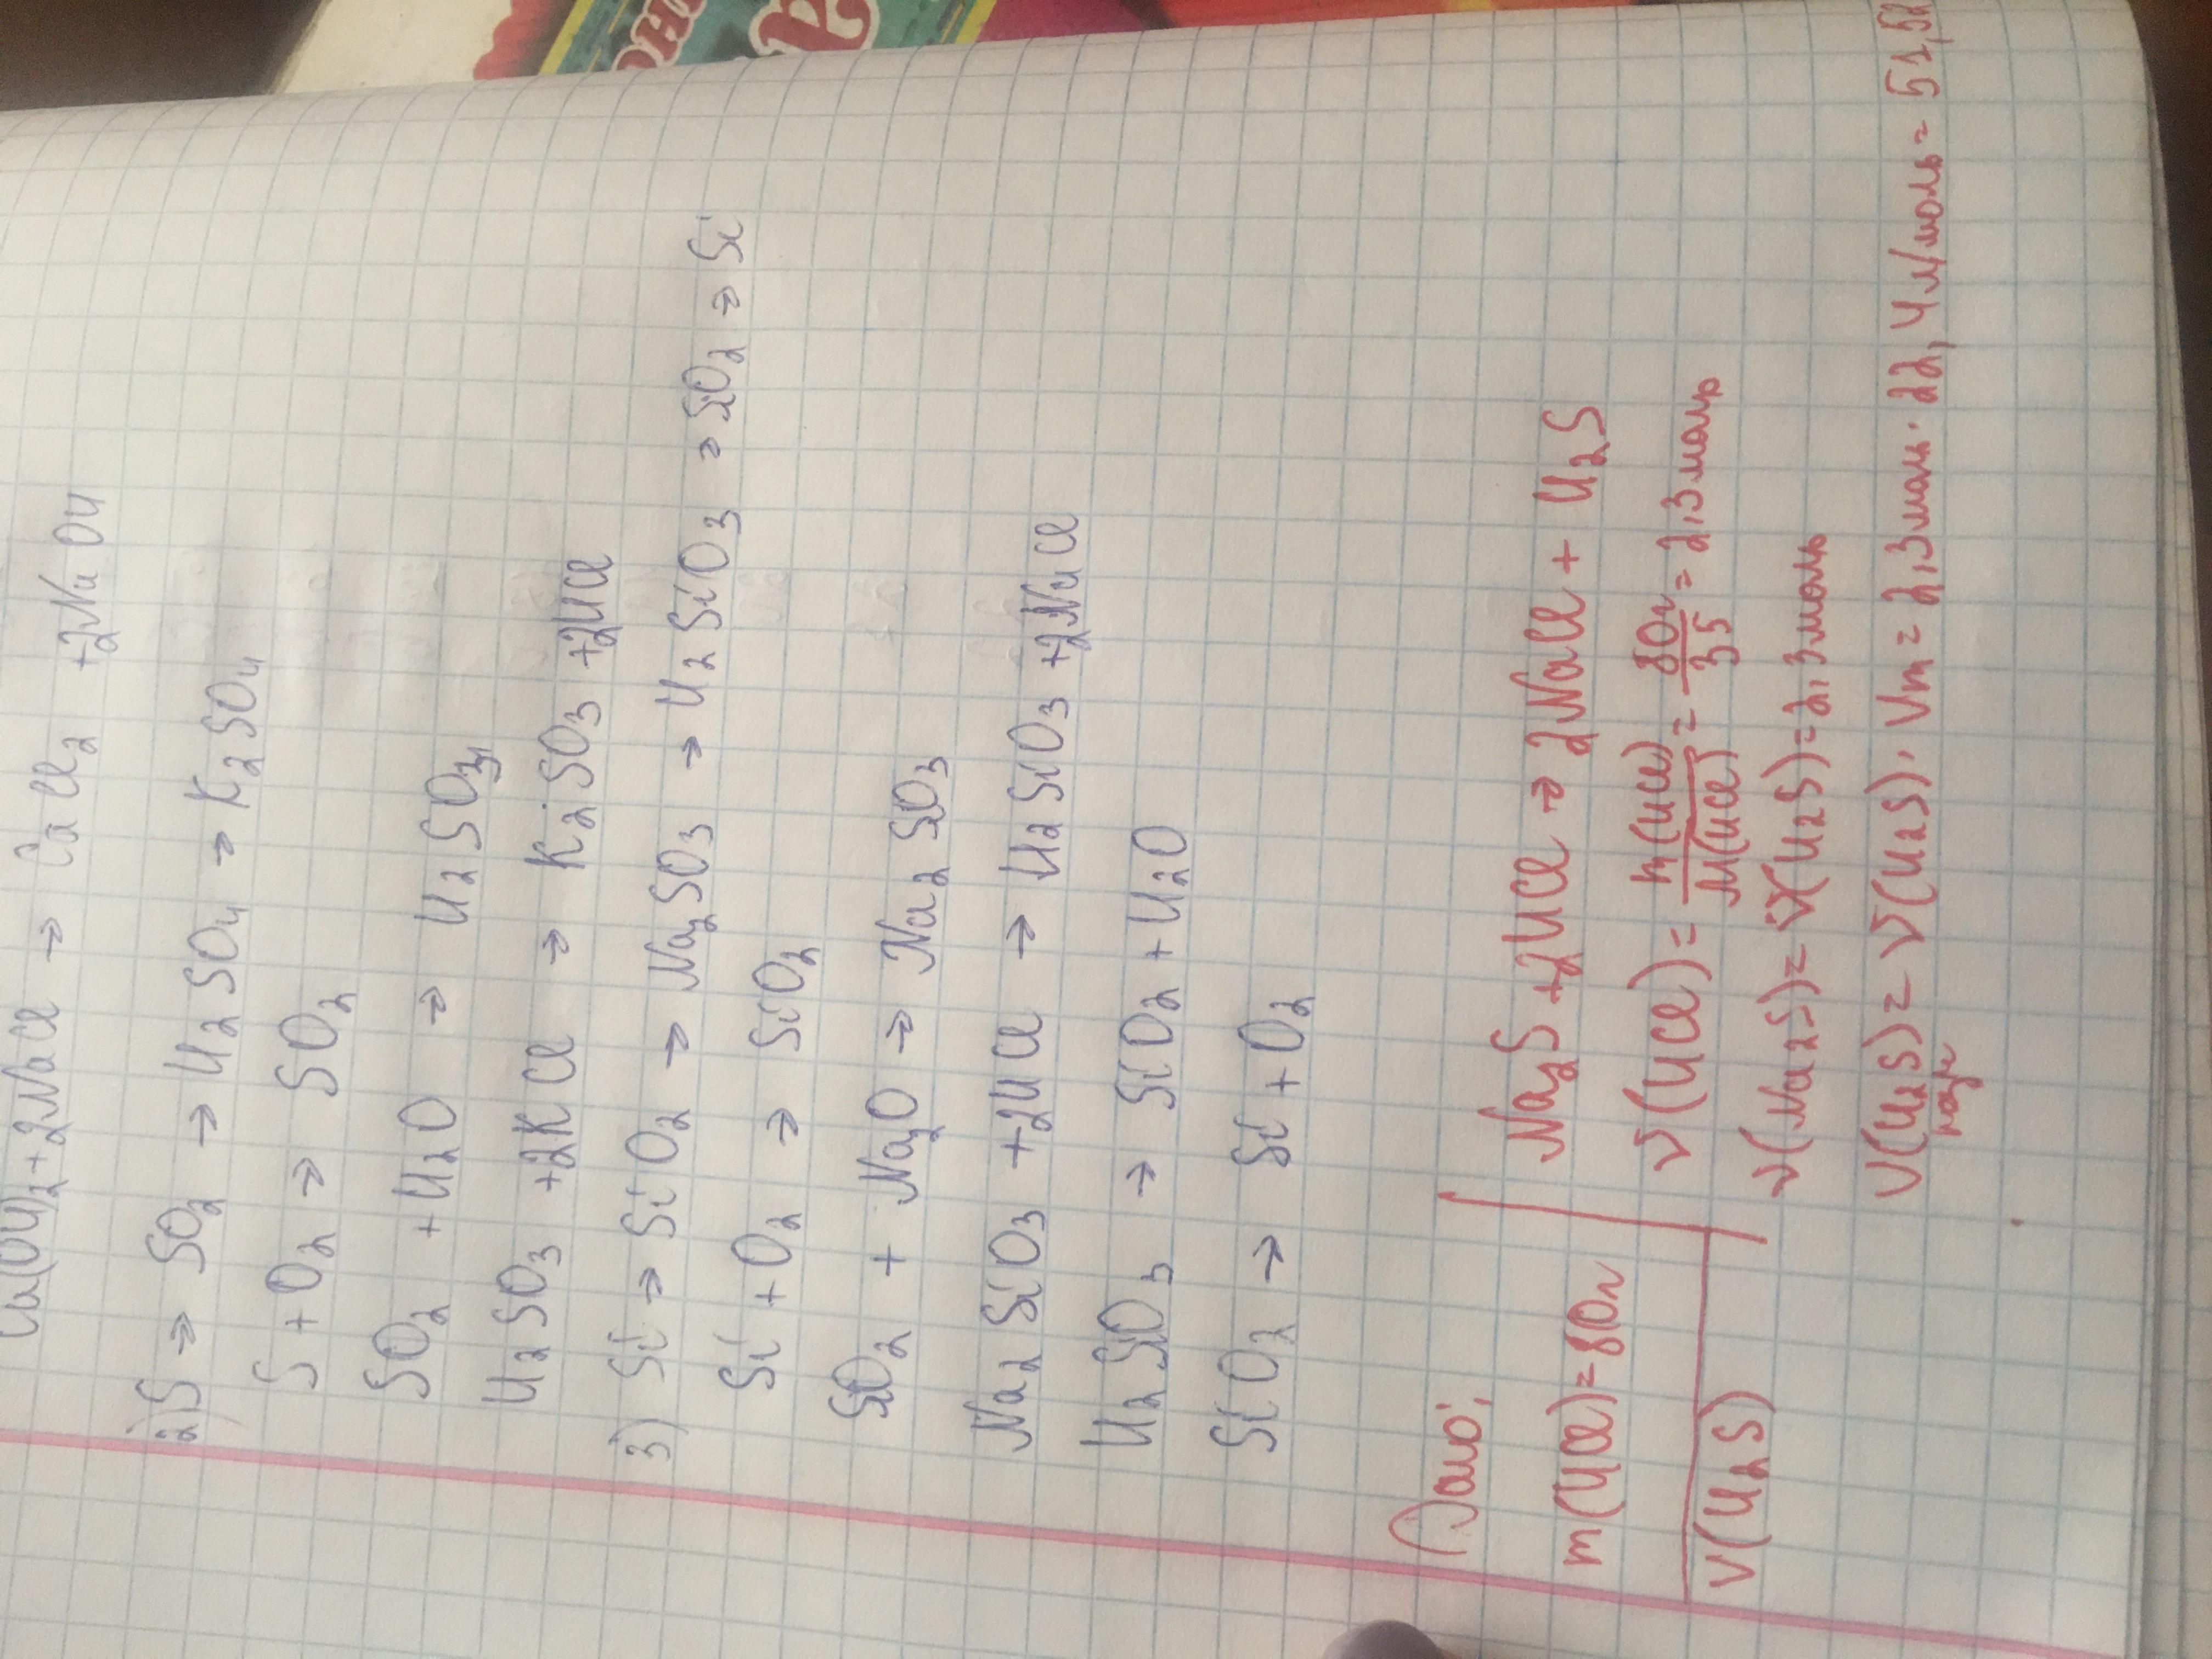 Ca(OH)₂ + 2NaCl → CaCl₂ + 2NaOH
2) S → SO₂ → H₂SO₄ → K₂SO₄
S + O₂ → SO₂
SO₂ + H₂O → H₂SO₃
H₂SO₃ + 2KCl → K₂SO₃ + 2HCl
3) Si → SiO₂ → Na₂SO₃ → H₂SiO₃ → SiO₂ → Si
Si + O₂ → SiO₂
SiO₂ + Na₂O → Na₂SiO₃
Na₂SiO₃ + 2HCl → H₂SiO₃ + 2NaCl
H₂SiO₃ → SiO₂ + H₂O
SiO₂ → Si + O₂
Дано:
m(HCl) = 80г
V(H₂S)
Na₂S + 2HCl → 2NaCl + H₂S
ν(HCl) = m(HCl)/M(HCl) = 80г/35 = 2,3 моль
ν(Na₂S) = ν(H₂S) = 2,3 моль
V(H₂S) = ν(H₂S) · Vm = 2,3 моль · 22,4 л/моль = 51,52